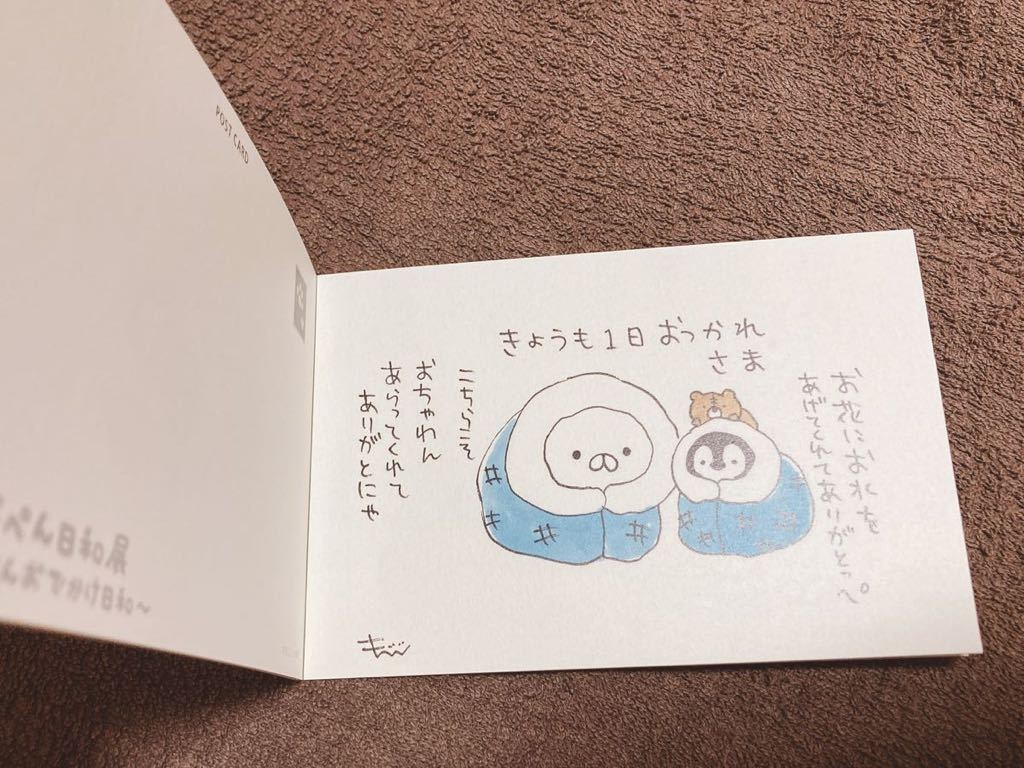 POST CARD
ぺん日和展
んおでかけ日和～
きょうも1日おつかれ
さま
お花にお水を
あげてくれてありがとっぺ。
こちらこそ
おちゃわん
あらってくれて
ありがとにゃ